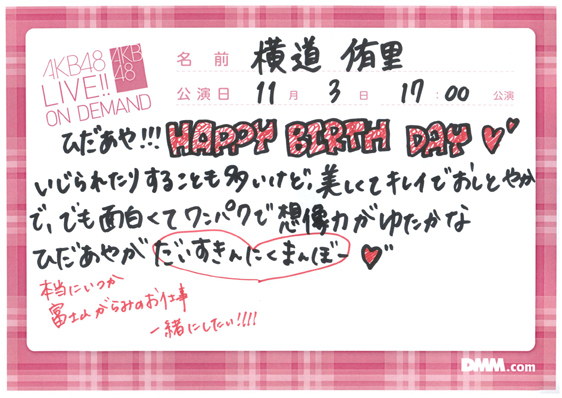 AKB48
LIVE!!
ON DEMAND
AKB
48
名前 横道 侑里
公演日 11月 3日 17:00 公演
ひだあや!!! HAPPY BIRTH DAY
いじられたりすることも多いけど、美しくてキレイでおしとやか
で、でも面白くてワンパクで想像力がゆたかな
ひだあやが だいすきんにくまんぼー
本当にいつか
富士山がらみのお仕事
一緒にしたい!!!!
DMM.com